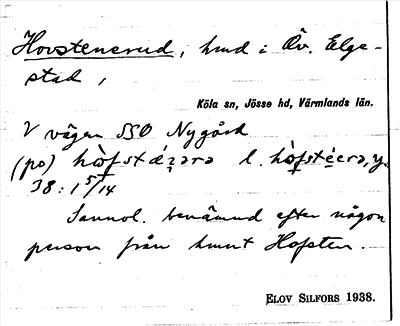 Hovstensrud, hmd i Öv. Elge-
stad,
Köla sn, Jösse hd, Värmlands län.
V vägen SSO Nygård
(på) l.
38:1 5/14
Sannol. benämnd efter någon
person från hmnt Hofsten.
ELOV SILFORS 1938.